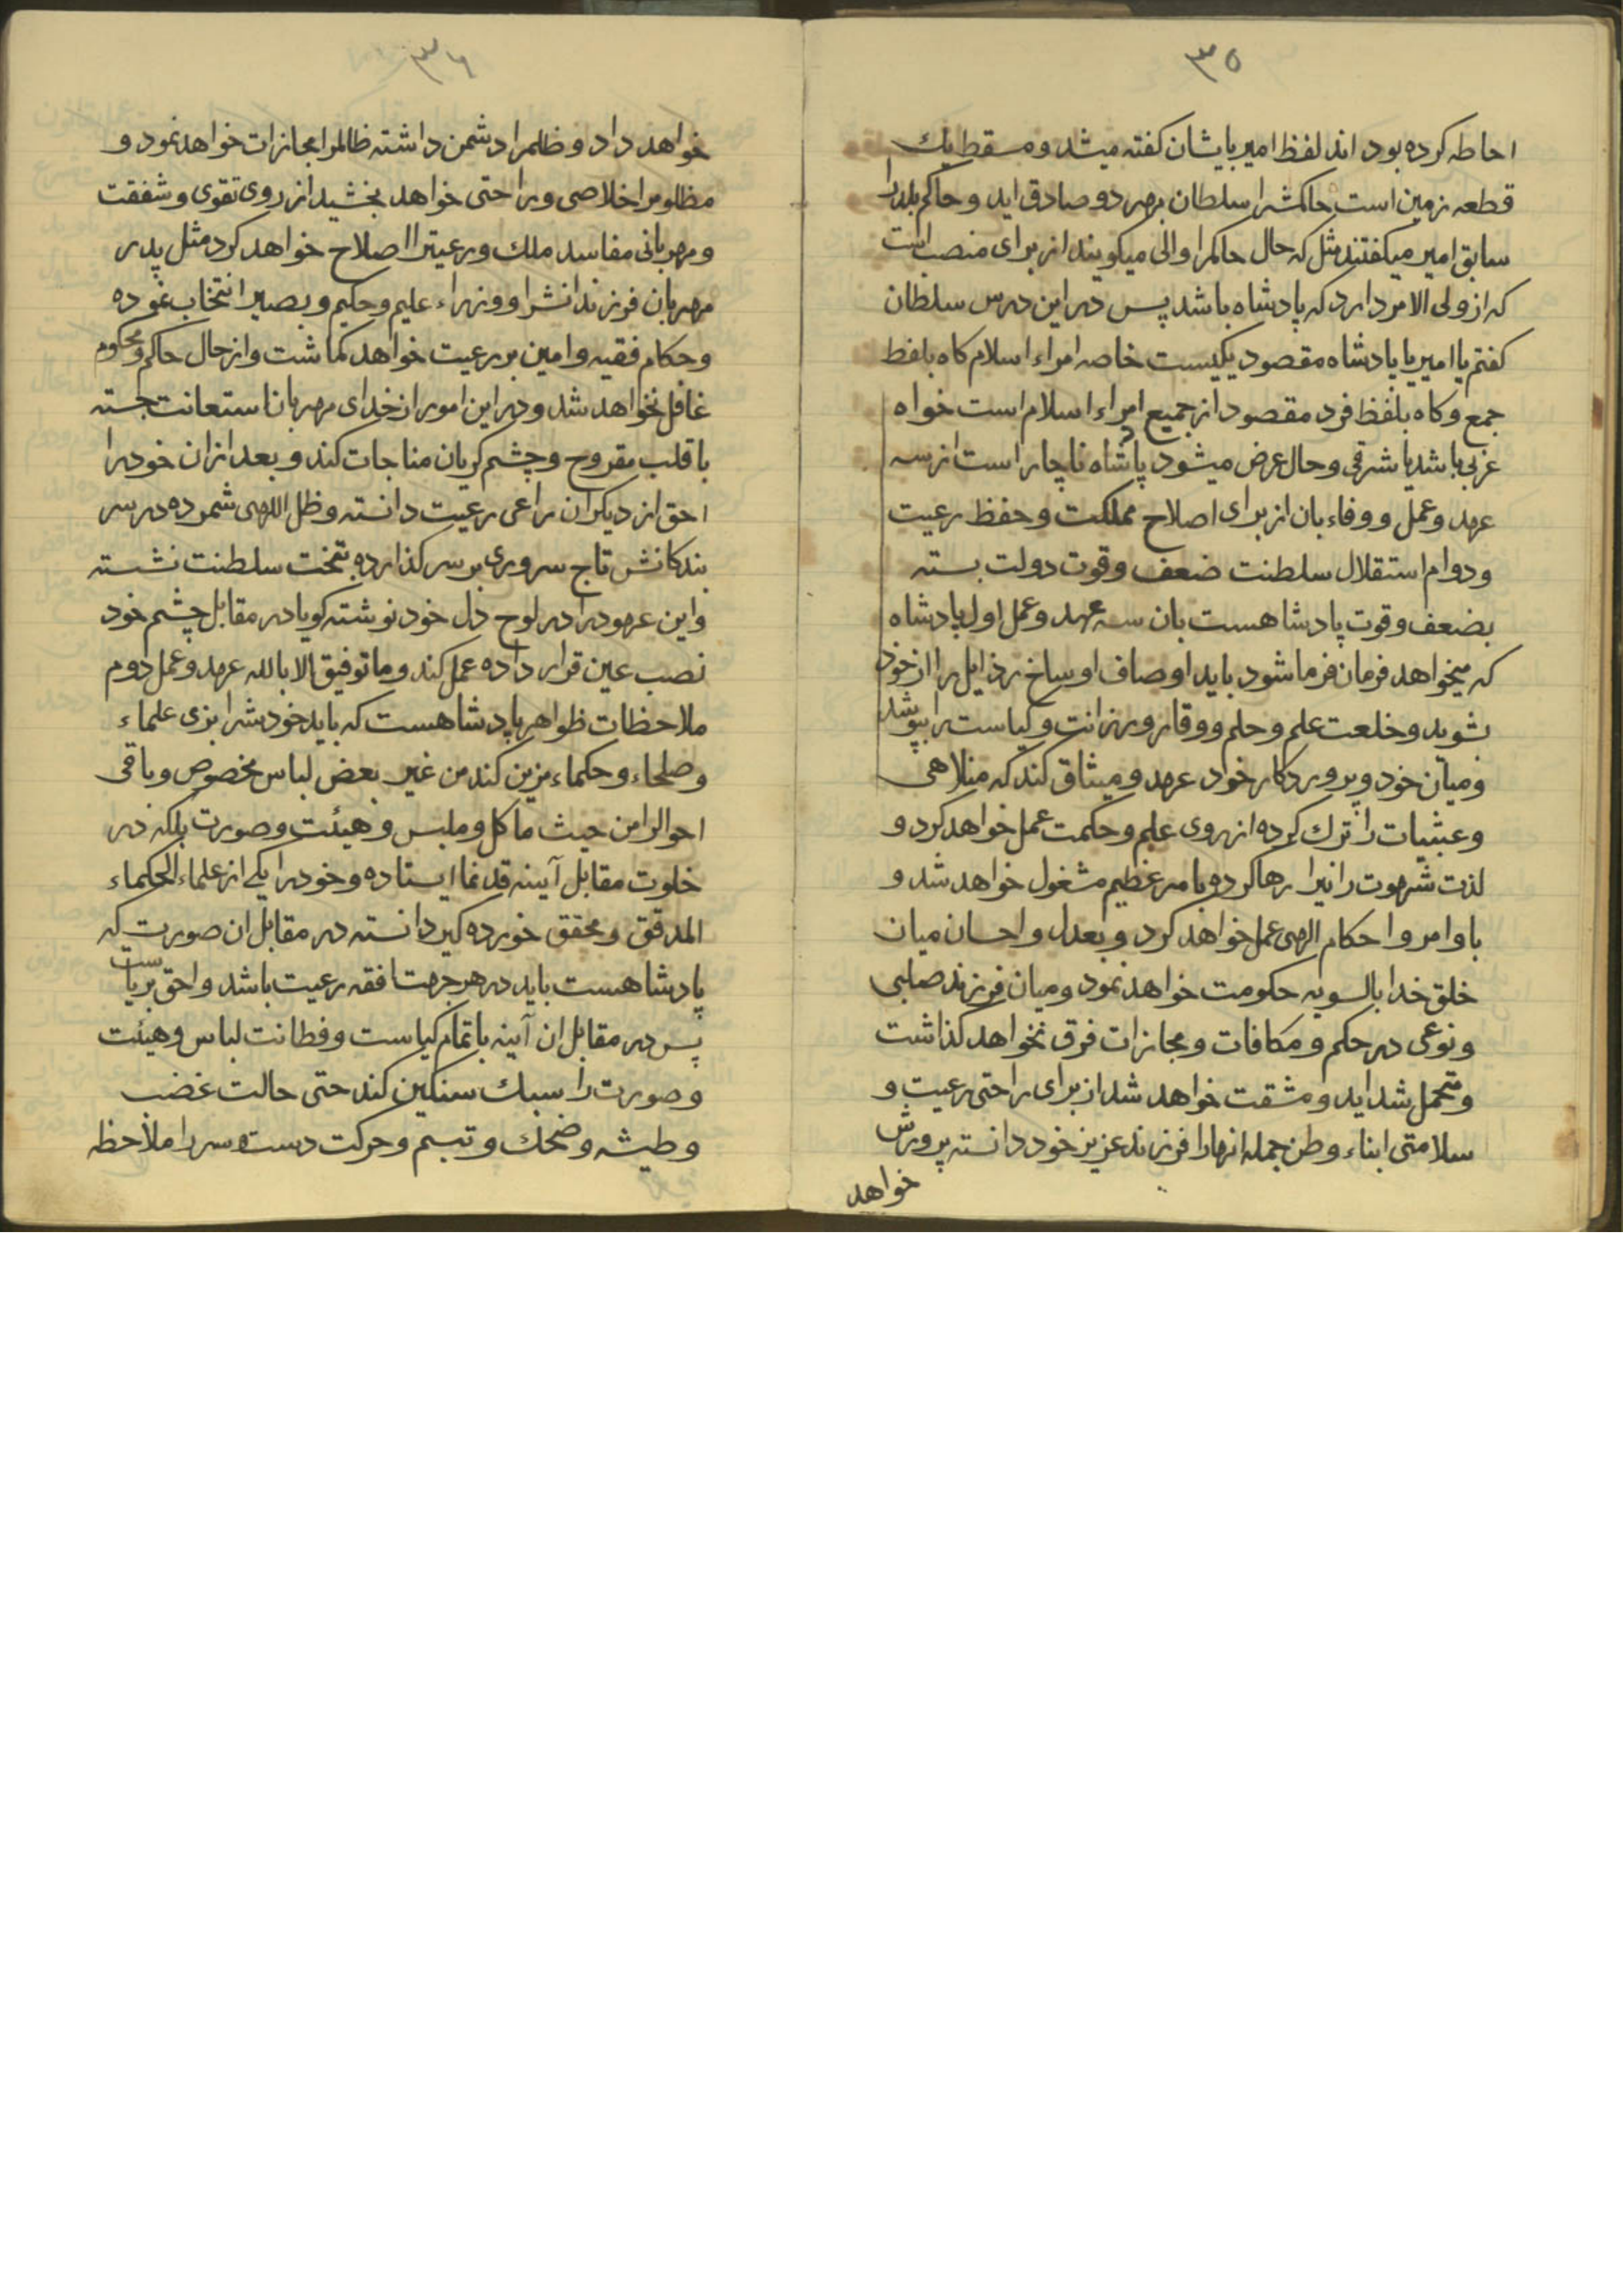 ٣٥
احاطه کرده بود اند لفظ امیر بایشان کفته میشد و مسقط یك
قطعه زمین است حاکمشرا سلطان بهر دو صادق اید و حاکم بلدرا
سابق امیر میکفتند مثل که حال حاکمرا والی میکویند از برای منصب است
که از ولی الامر دارد که پادشاه باشد پس در این درس سلطان
کفتم یا امیر یا پادشاه مقصود یکیست خاصه امراء اسلام کاه بلفظ
جمع و کاه بلفظ فرد مقصود از جمیع امراء اسلام است خواه
غربی باشد یا شرقی و حال عرض میشود پادشاه ناچار است از سه
عهد و عمل و وفاء بان از برای اصلاح مملکت و حفظ رعیت
و دوام استقلال سلطنت ضعف و قوت دولت بسته
بضعف و قوت پادشاهست بان سه عهد و عمل اول پادشاه
که میخواهد فرمان فرما شود باید اوصاف اوساخ رذایل را از خود
بشوید و خلعت علم و حلم و وقار و رزانت و کیاست را بپوشد
و میان خود و پروردکار خود عهد و میثاق کند که مناهی
و عبثیات را ترك کرده از روی علم و حکمت عمل خواهد کرد و
لذت شهوت رانیرا رها کرده بامر عظیم مشغول خواهد شد و
باوامر و احکام الهی عمل خواهد کرد و بعدل و احسان میان
خلق خدا بالسویه حکومت خواهد نمود و میان فرزند صلبی
و نوعی در حکم و مکافات و مجازات فرق نخواهد کذاشت
و متحمل شداید و مشقت خواهد شد از برای راحتی رعیت و
سلامتی ابناء وطن جمله انهارا فرزند عزیز خود دانسته پرورش
خواهد
٣٦
خواهد داد و ظلمرا دشمن داشته ظالمرا مجازات خواهد نمود و
مظلومرا خلاصی و راحتی خواهد بخشید از روی تقوی و شفقت
و مهربانی مفاسد ملك و رعیترا اصلاح خواهد کرد مثل پدر
مهربان فرزندانشرا و وزراء علیم و حکیم و بصیر انتخاب نموده
و حکام فقیه و امین بر رعیت خواهد کماشت و از حال حاکم و محکوم
غافل نخواهد شد و در این امور از خدای مهربان استعانت جسته
با قلب مقروح و چشم کریان مناجات کند و بعد از ان خودرا
احق از دیکران راعی رعیت دانسته و ظل اللهی شمرده در سر
بندکانش تاج سروری بر سر کذارده بتخت سلطنت نشسته
و این عهودرا در لوح دل خود نوشته کویا در مقابل چشم خود
نصب عین قرار داده عمل کند و ما توفیق الا بالله عهد و عمل دوم
ملاحظات ظواهر پادشاهست که باید خودشرا بزی علماء
و صلحاء و حکماء مزین کند من غیر بعض لباس مخصوص و باقی
احوالرا من حیث ماکل و ملبس و هیئت و صورت بلکه در
خلوت مقابل آیینه قدنما ایستاده و خودرا یکی از علماء الحکماء
المدقق و محقق خورده کیر دانسته در مقابل ان صورت که
پادشاهست باید در هر جهت افقه رعیت باشد و احق بریاست
پس در مقابل ان آینه با تمام کیاست و فطانت لباس و هیئت
و صورت را سبك سنکین کند حتی حالت غضب
و طیشه و ضحك و تبسم و حرکت دست و سررا ملاحظه